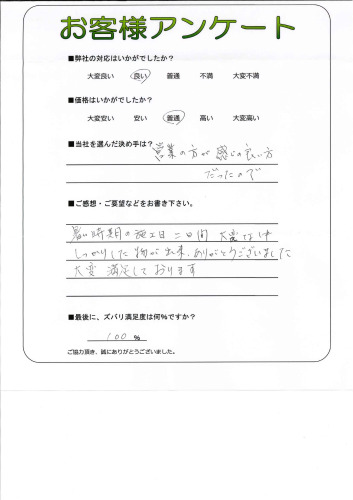 お客様アンケート
■弊社の対応はいかがでしたか?
大変良い 良い 普通 不満 大変不満
■価格はいかがでしたか?
大変安い 安い 普通 高い 大変高い
■当社を選んだ決め手は?
営業の方が感じの良い方
だったので
■ご感想・ご要望などをお書き下さい。
暑い時期の施工日二日間 大変な中
しっかりした物が出来、ありがとうございました
大変満足しております
■最後に、ズバリ満足度は何%ですか?
100 %
ご協力頂き、誠にありがとうございました。